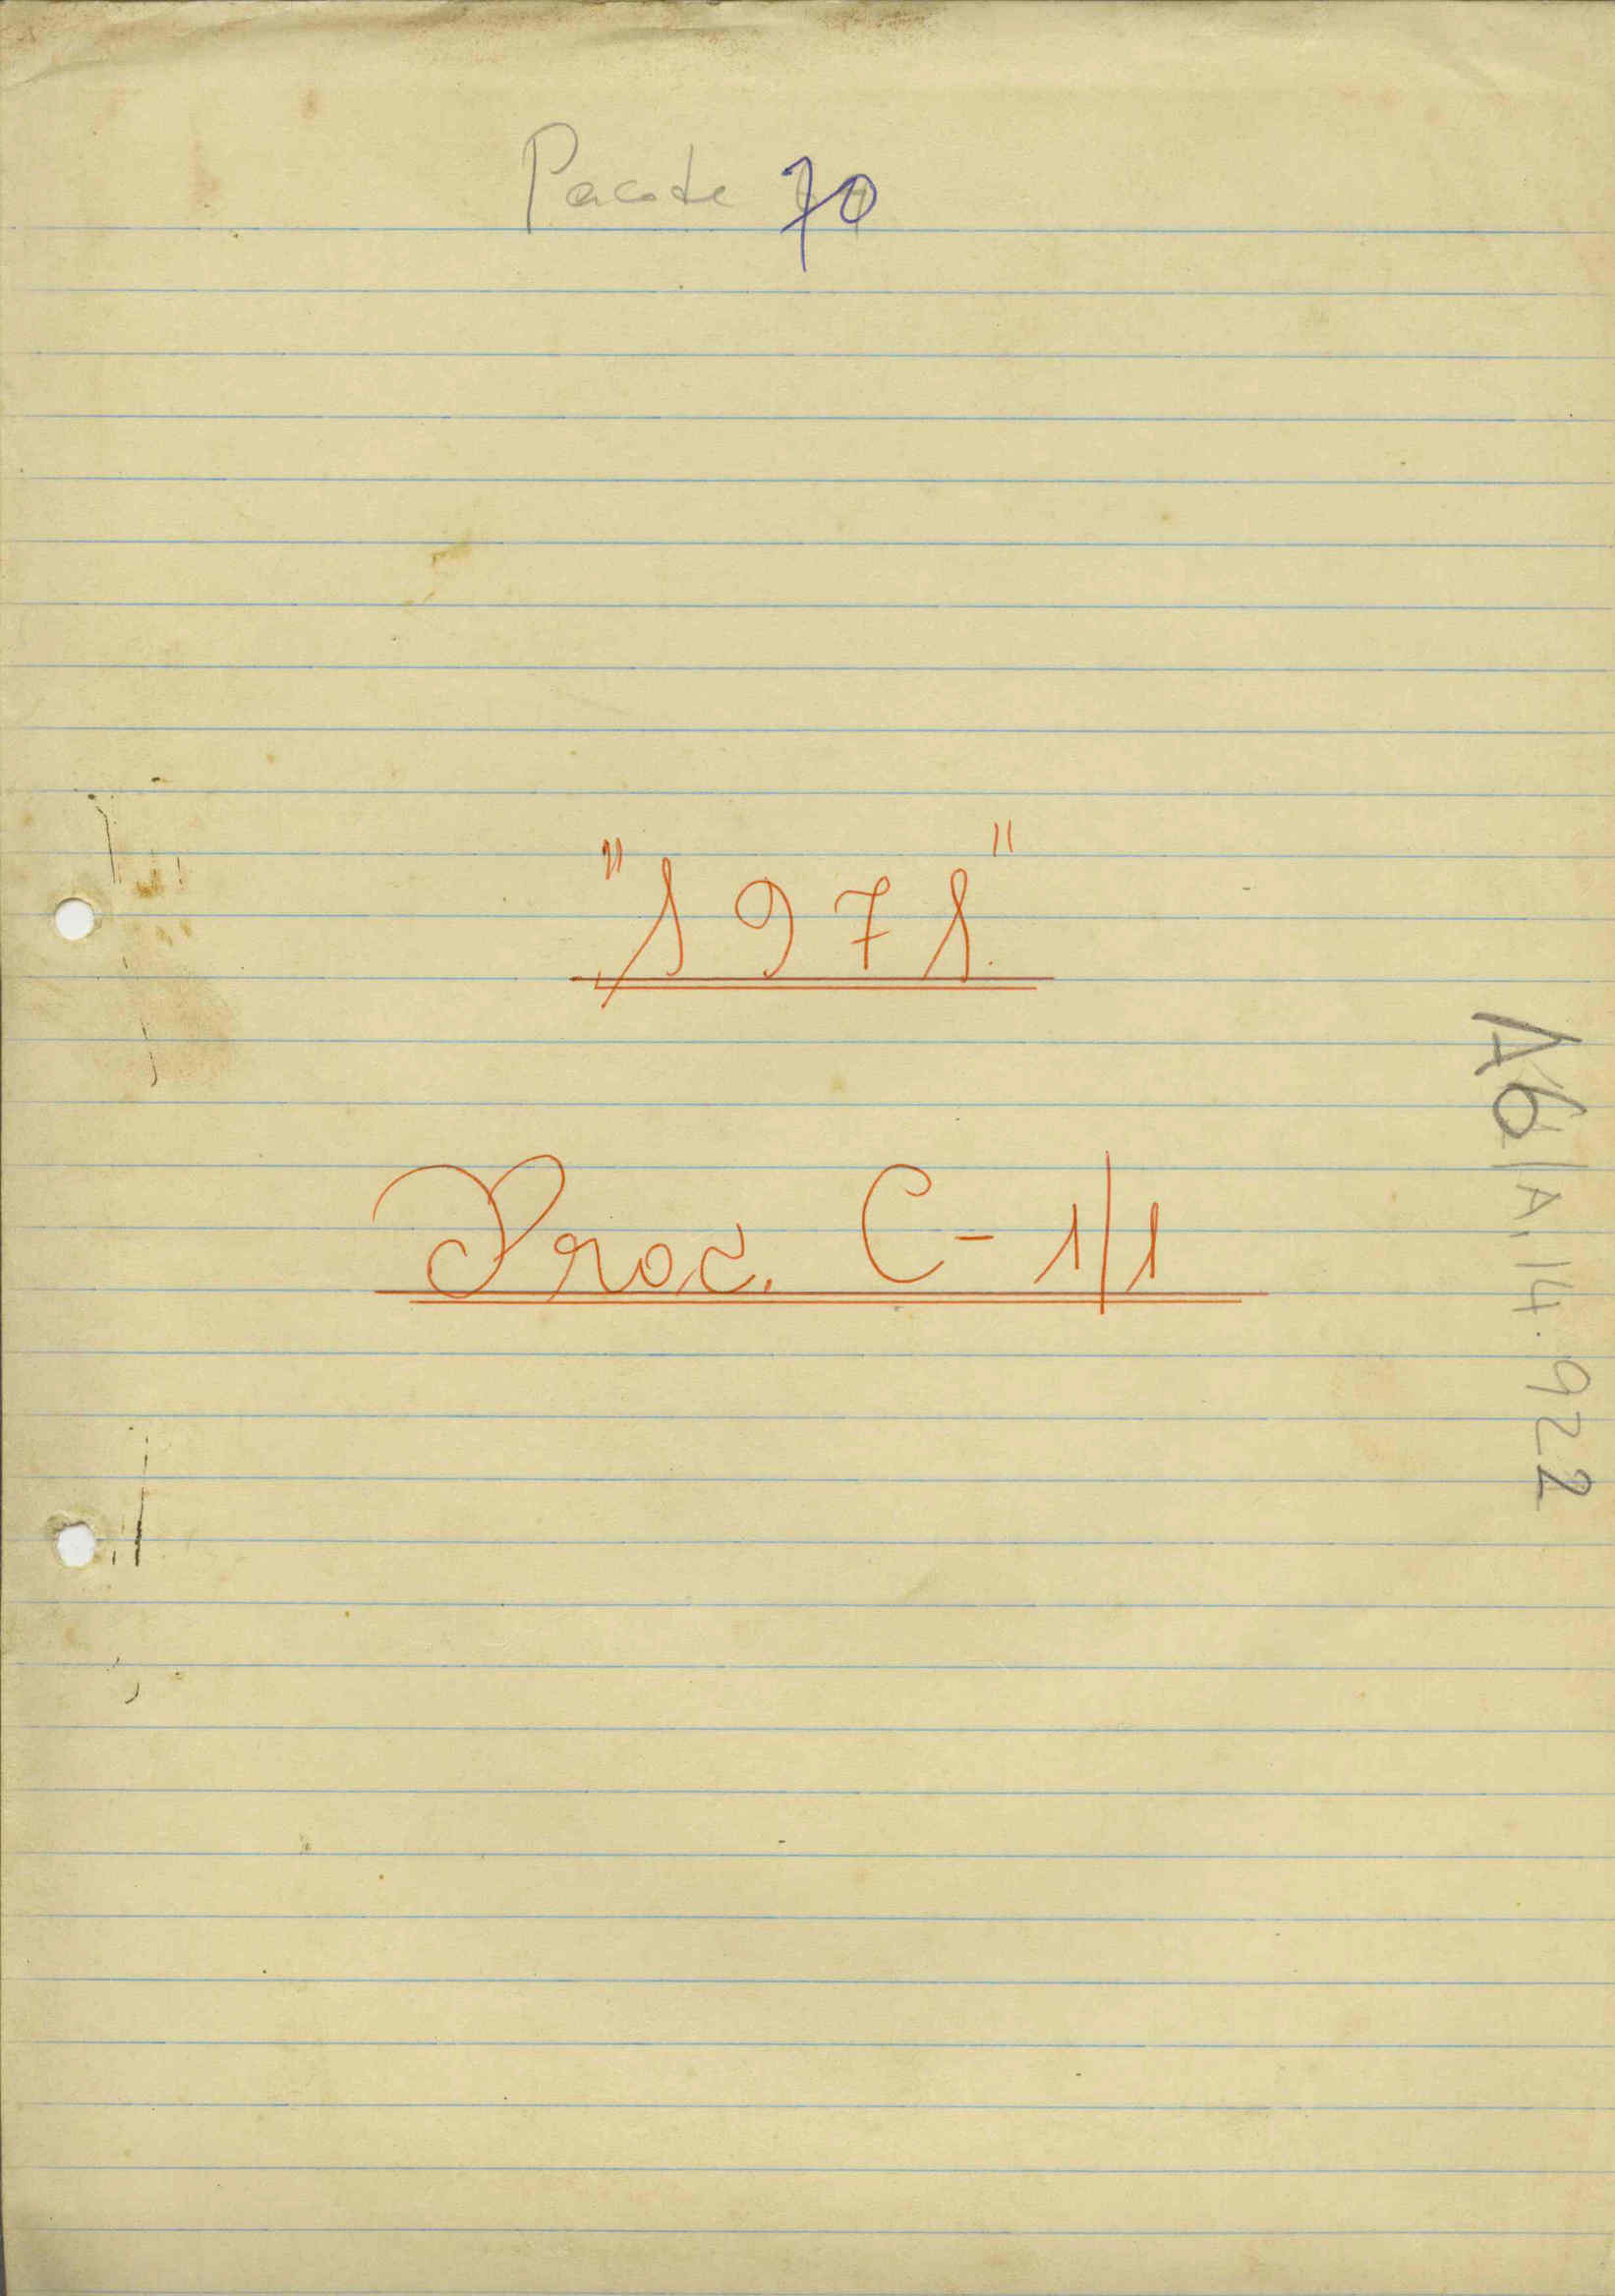 Pacote 70
"1971"
Proc. C-1/1
A6/A.14.922